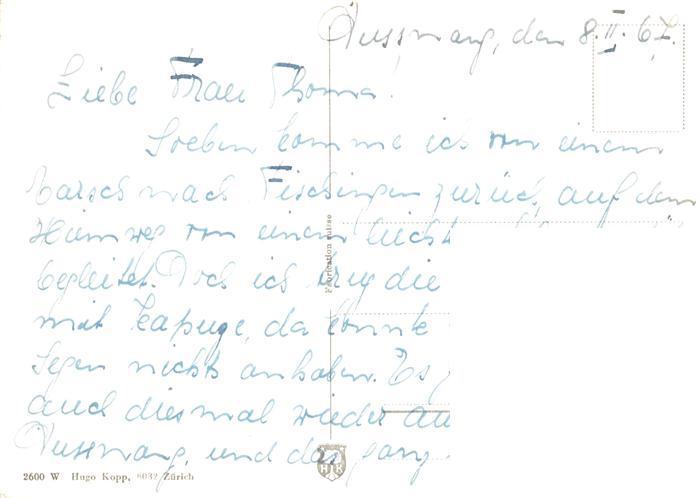 Dussnang, den 8. II. 67.
Liebe Frau Thoma!
Soeben komme ich von einem
Marsch nach Fischingen zurück, auf dem
Heimweg von einem leicht
begleitet. Doch ich trug die
mit Kapuze, da konnte
Regen nichts anhaben. Es
auch diesmal wieder au
Dussnang, und das ganz
Fabrication suisse
HK
2600 W Hugo Kopp, 8032 Zürich